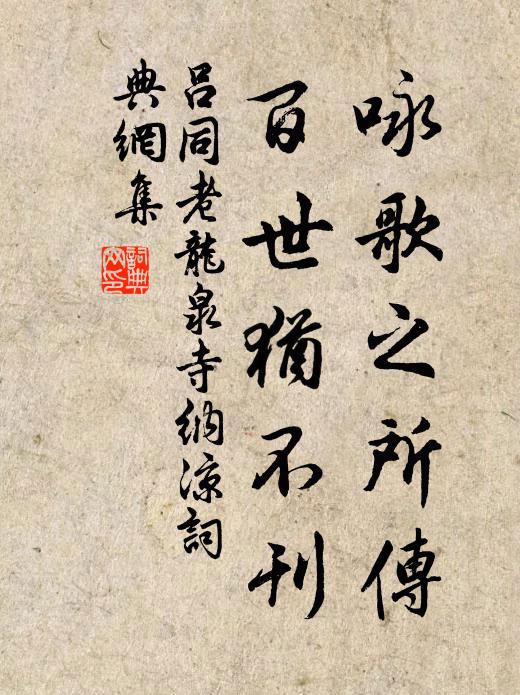 咏歌之所傳
百世猶不刊
呂同老龍泉寺納涼詞
典網集
詞典網印